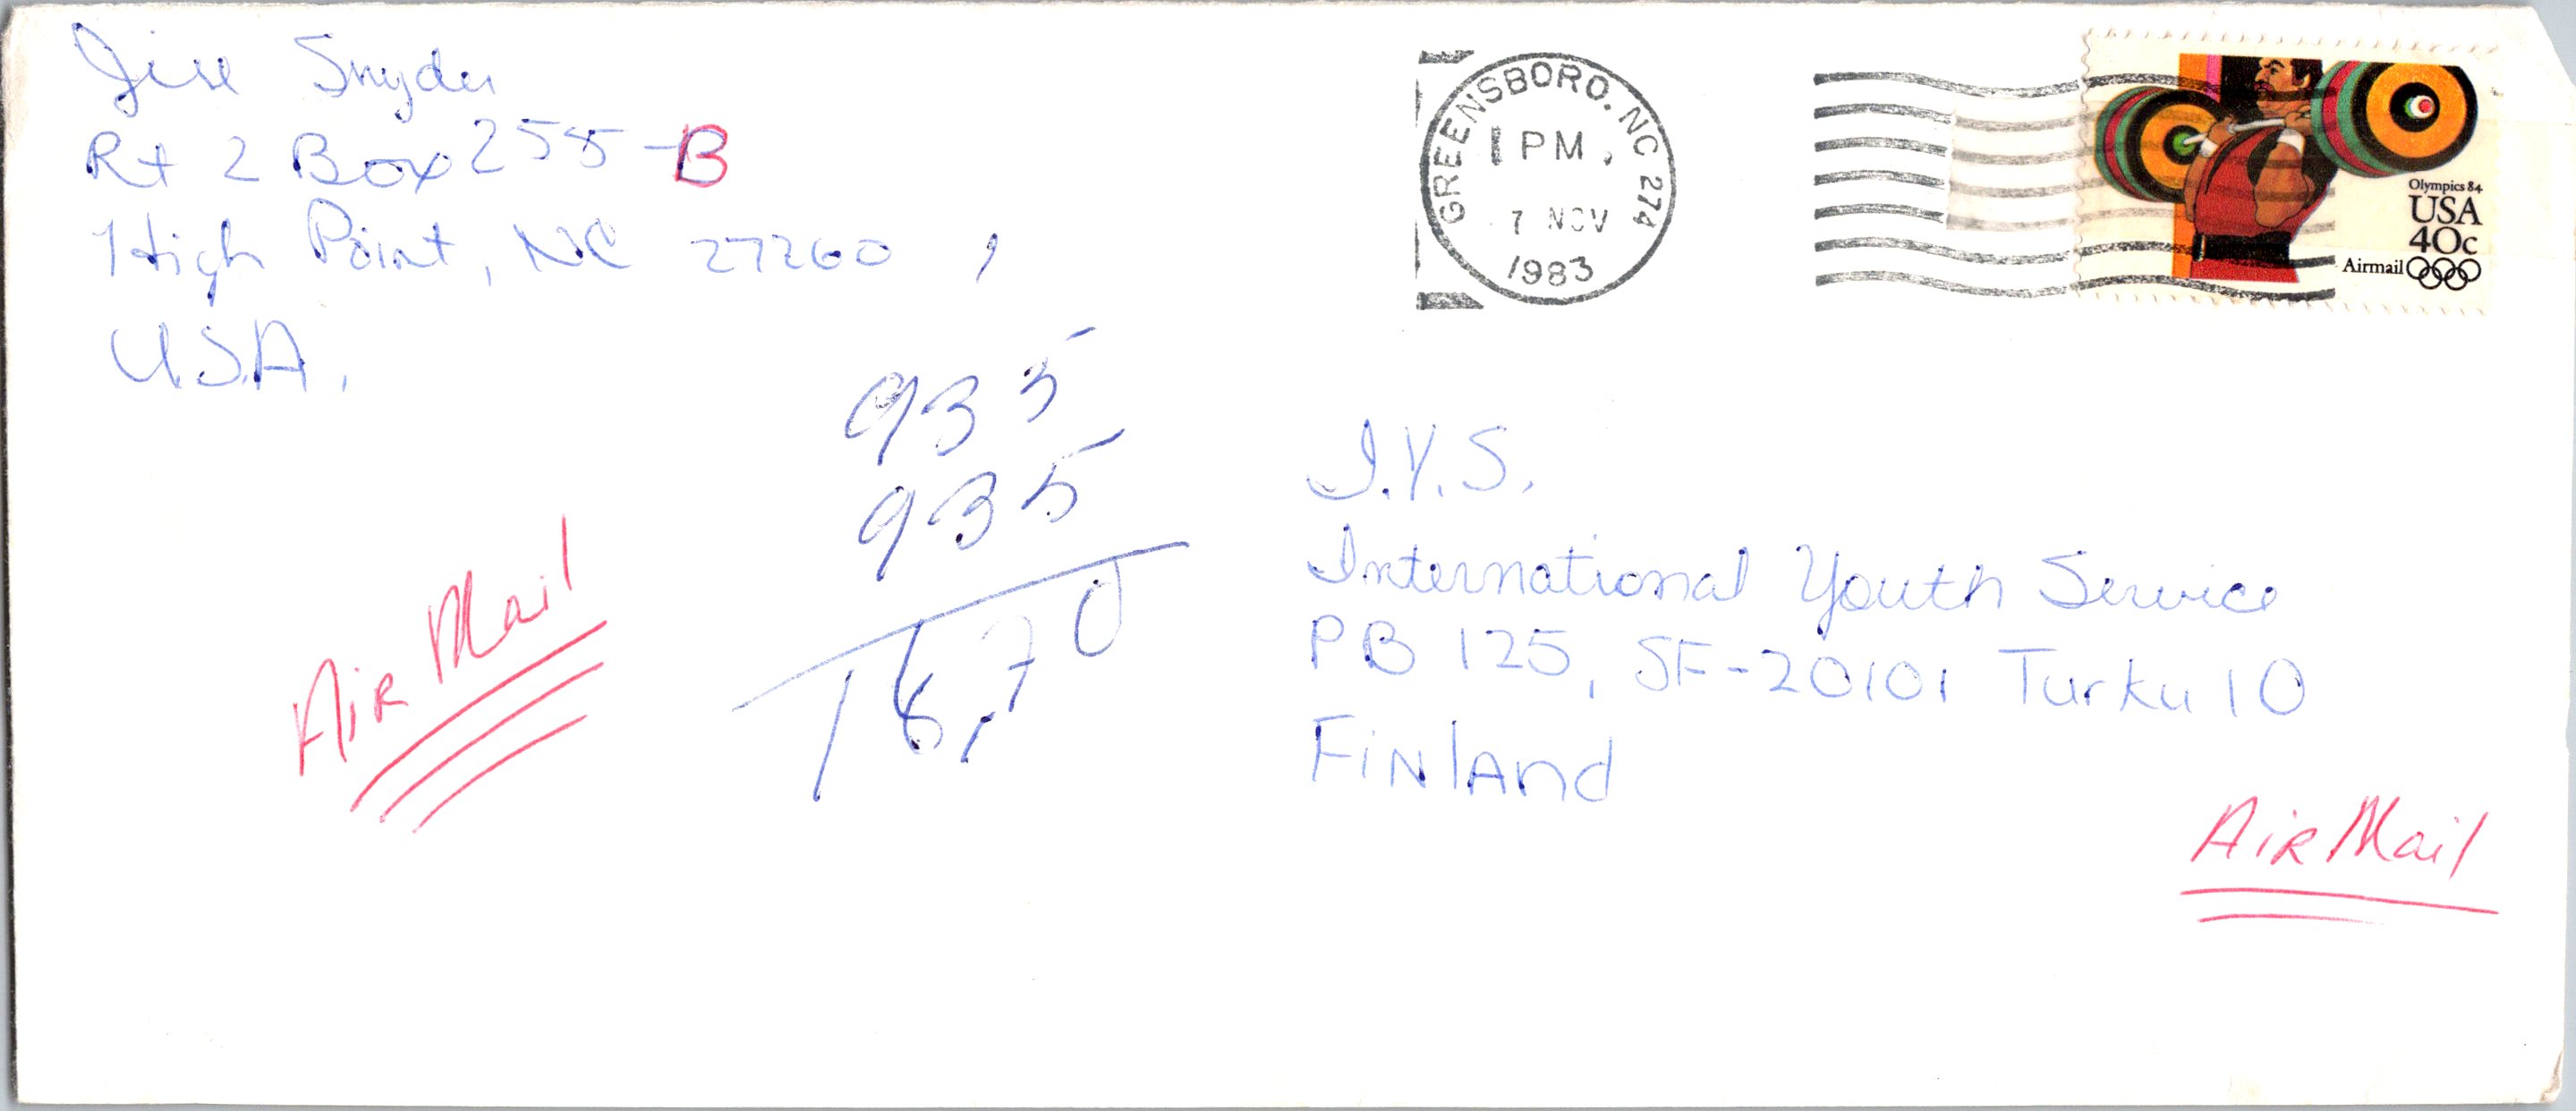 Jill Snyder
Rt 2 Box 255-B
High Point, NC 27260,
U.S.A.
GREENSBORO, NC 274
1 PM
7 NOV
1983
Olympics 84
USA
40c
Airmail
935
935
18,70
I.Y.S.
International Youth Service
PB 125, SF-20101 Turku 10
FINlANd
AiR Mail
AiR Mail